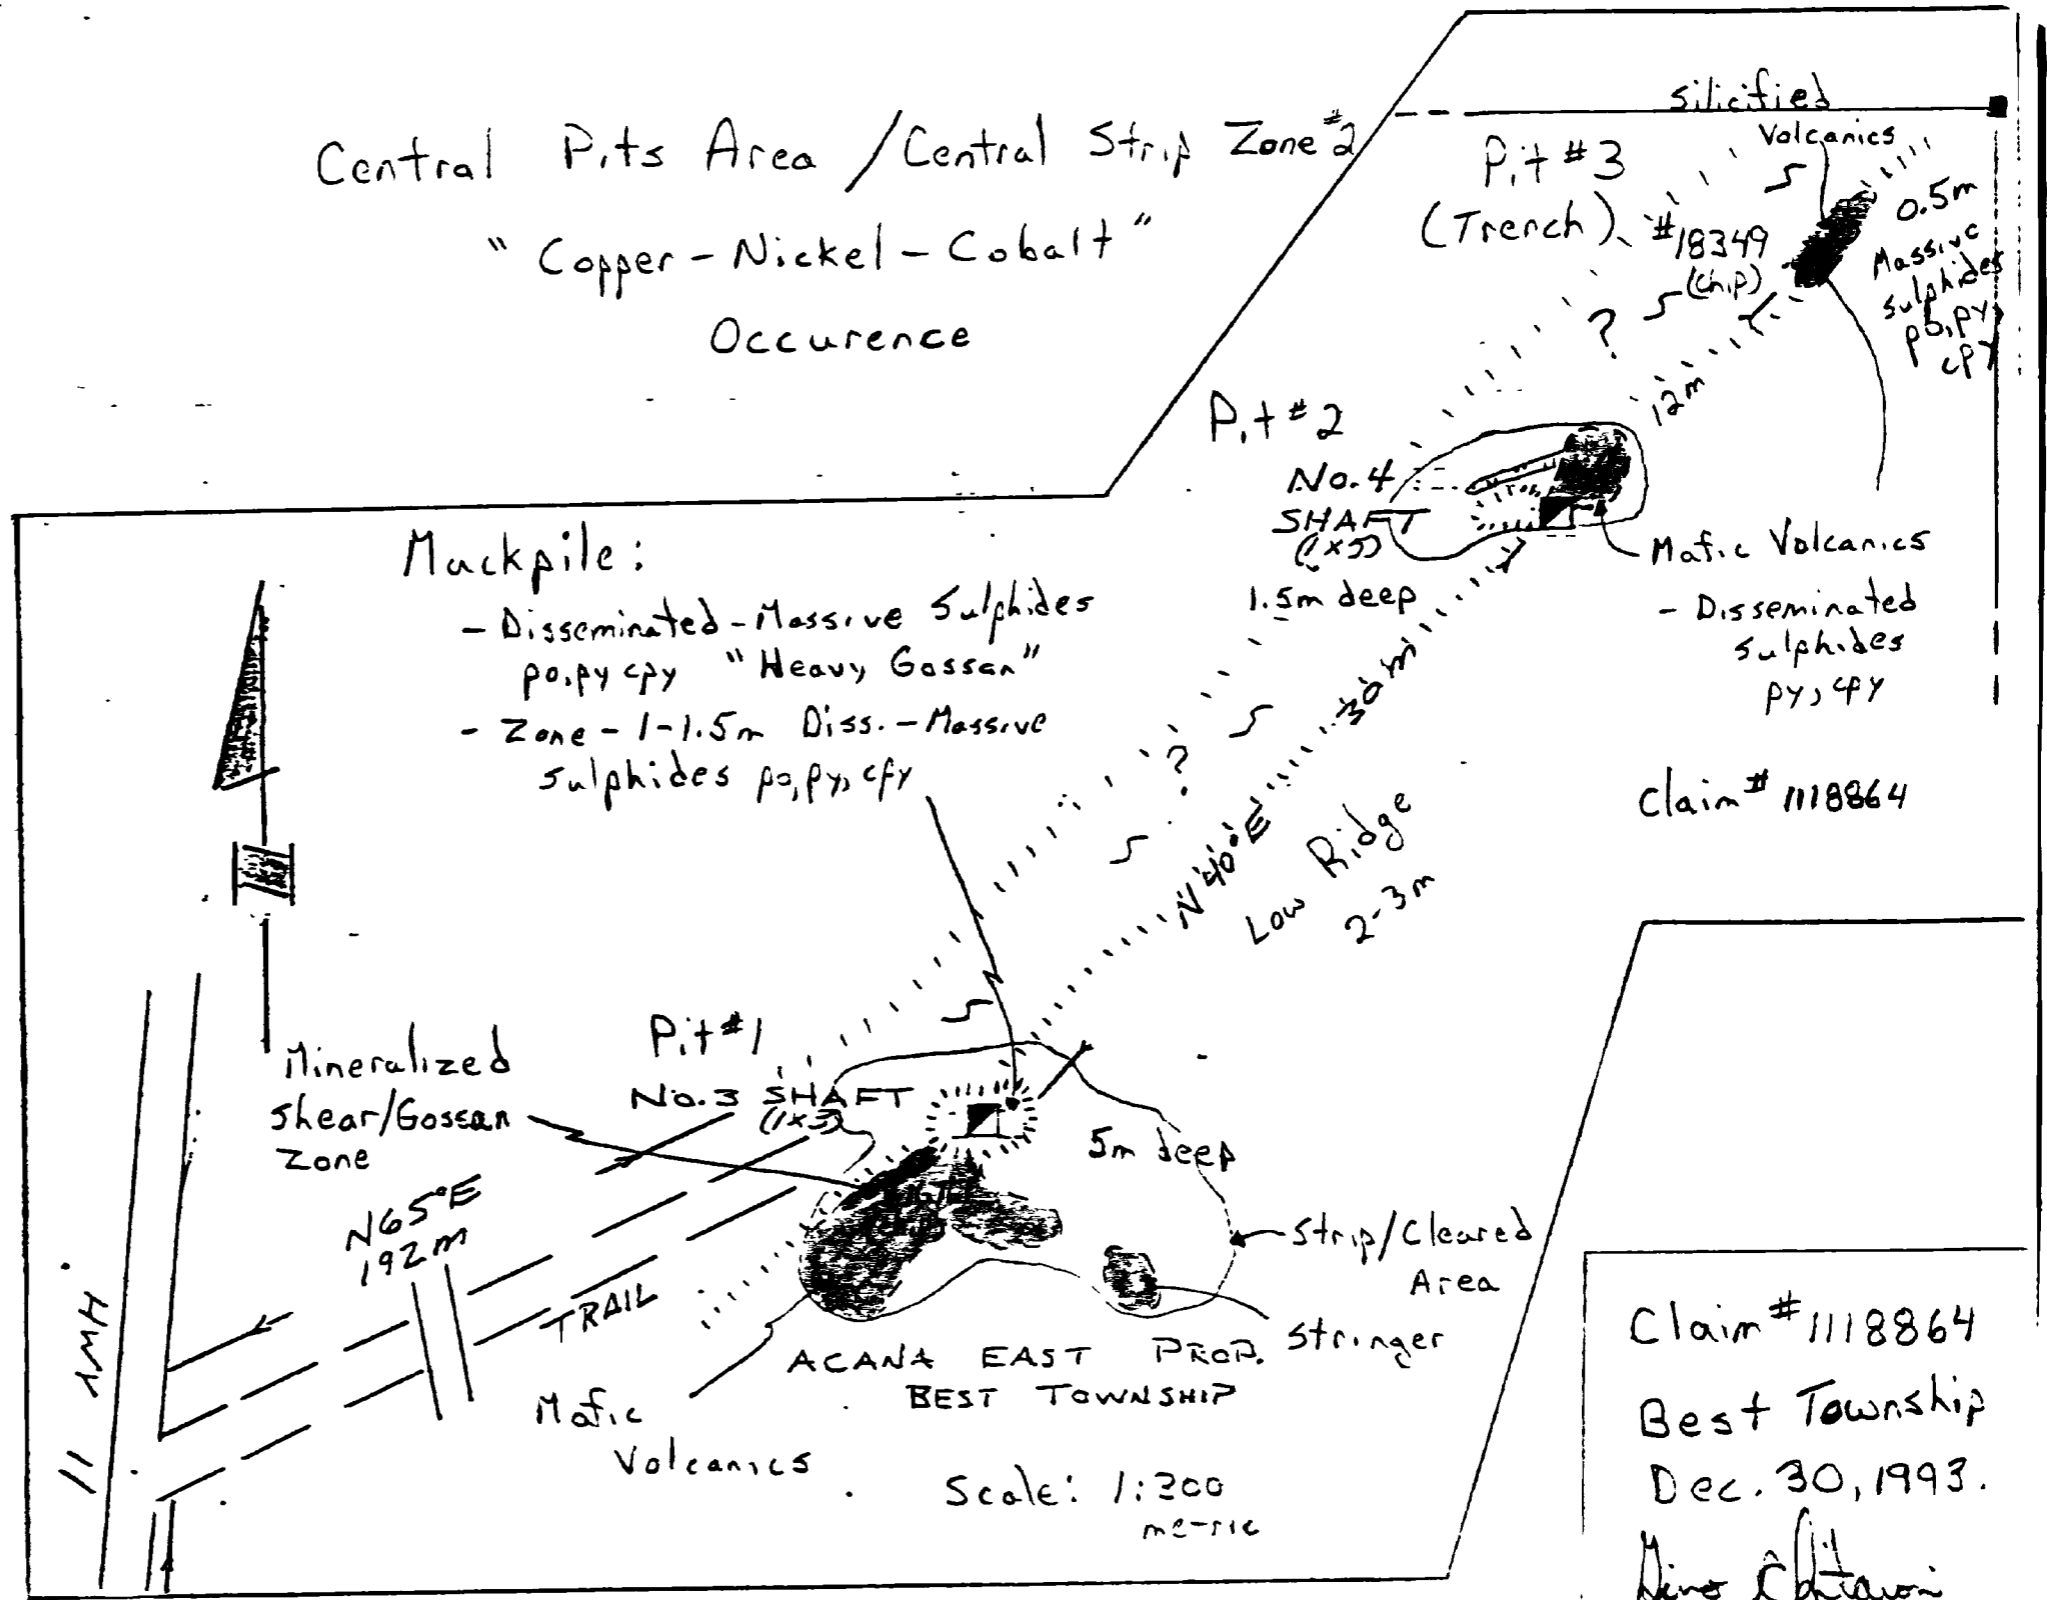 Central Pits Area / Central Strip Zone #2
"Copper - Nickel - Cobalt"
Occurence
silicified
Volcanics
Pit #3
(Trench)
#18349
(chip)
0.5m
Massive
sulphides
po, py,
cpy
?
12m
Pit #2
No. 4
SHAFT
1.5m deep
Mafic Volcanics
- Disseminated
sulphides
py, cpy
Claim # 1118864
Muckpile:
- Disseminated - Massive Sulphides
po, py cpy "Heavy Gossan"
- Zone - 1-1.5m Diss. - Massive
sulphides po, py, cpy
30m
?
N40°E
Low Ridge
2-3m
N
Pit #1
No. 3 SHAFT
5m deep
Mineralized
Shear/Gossan
Zone
N65°E
192m
TRAIL
HWY 11
Strip/Cleared
Area
Stringer
Mafic
Volcanics
ACANA EAST PROP.
BEST TOWNSHIP
Scale: 1:200
metric
Claim # 1118864
Best Township
Dec. 30, 1993.